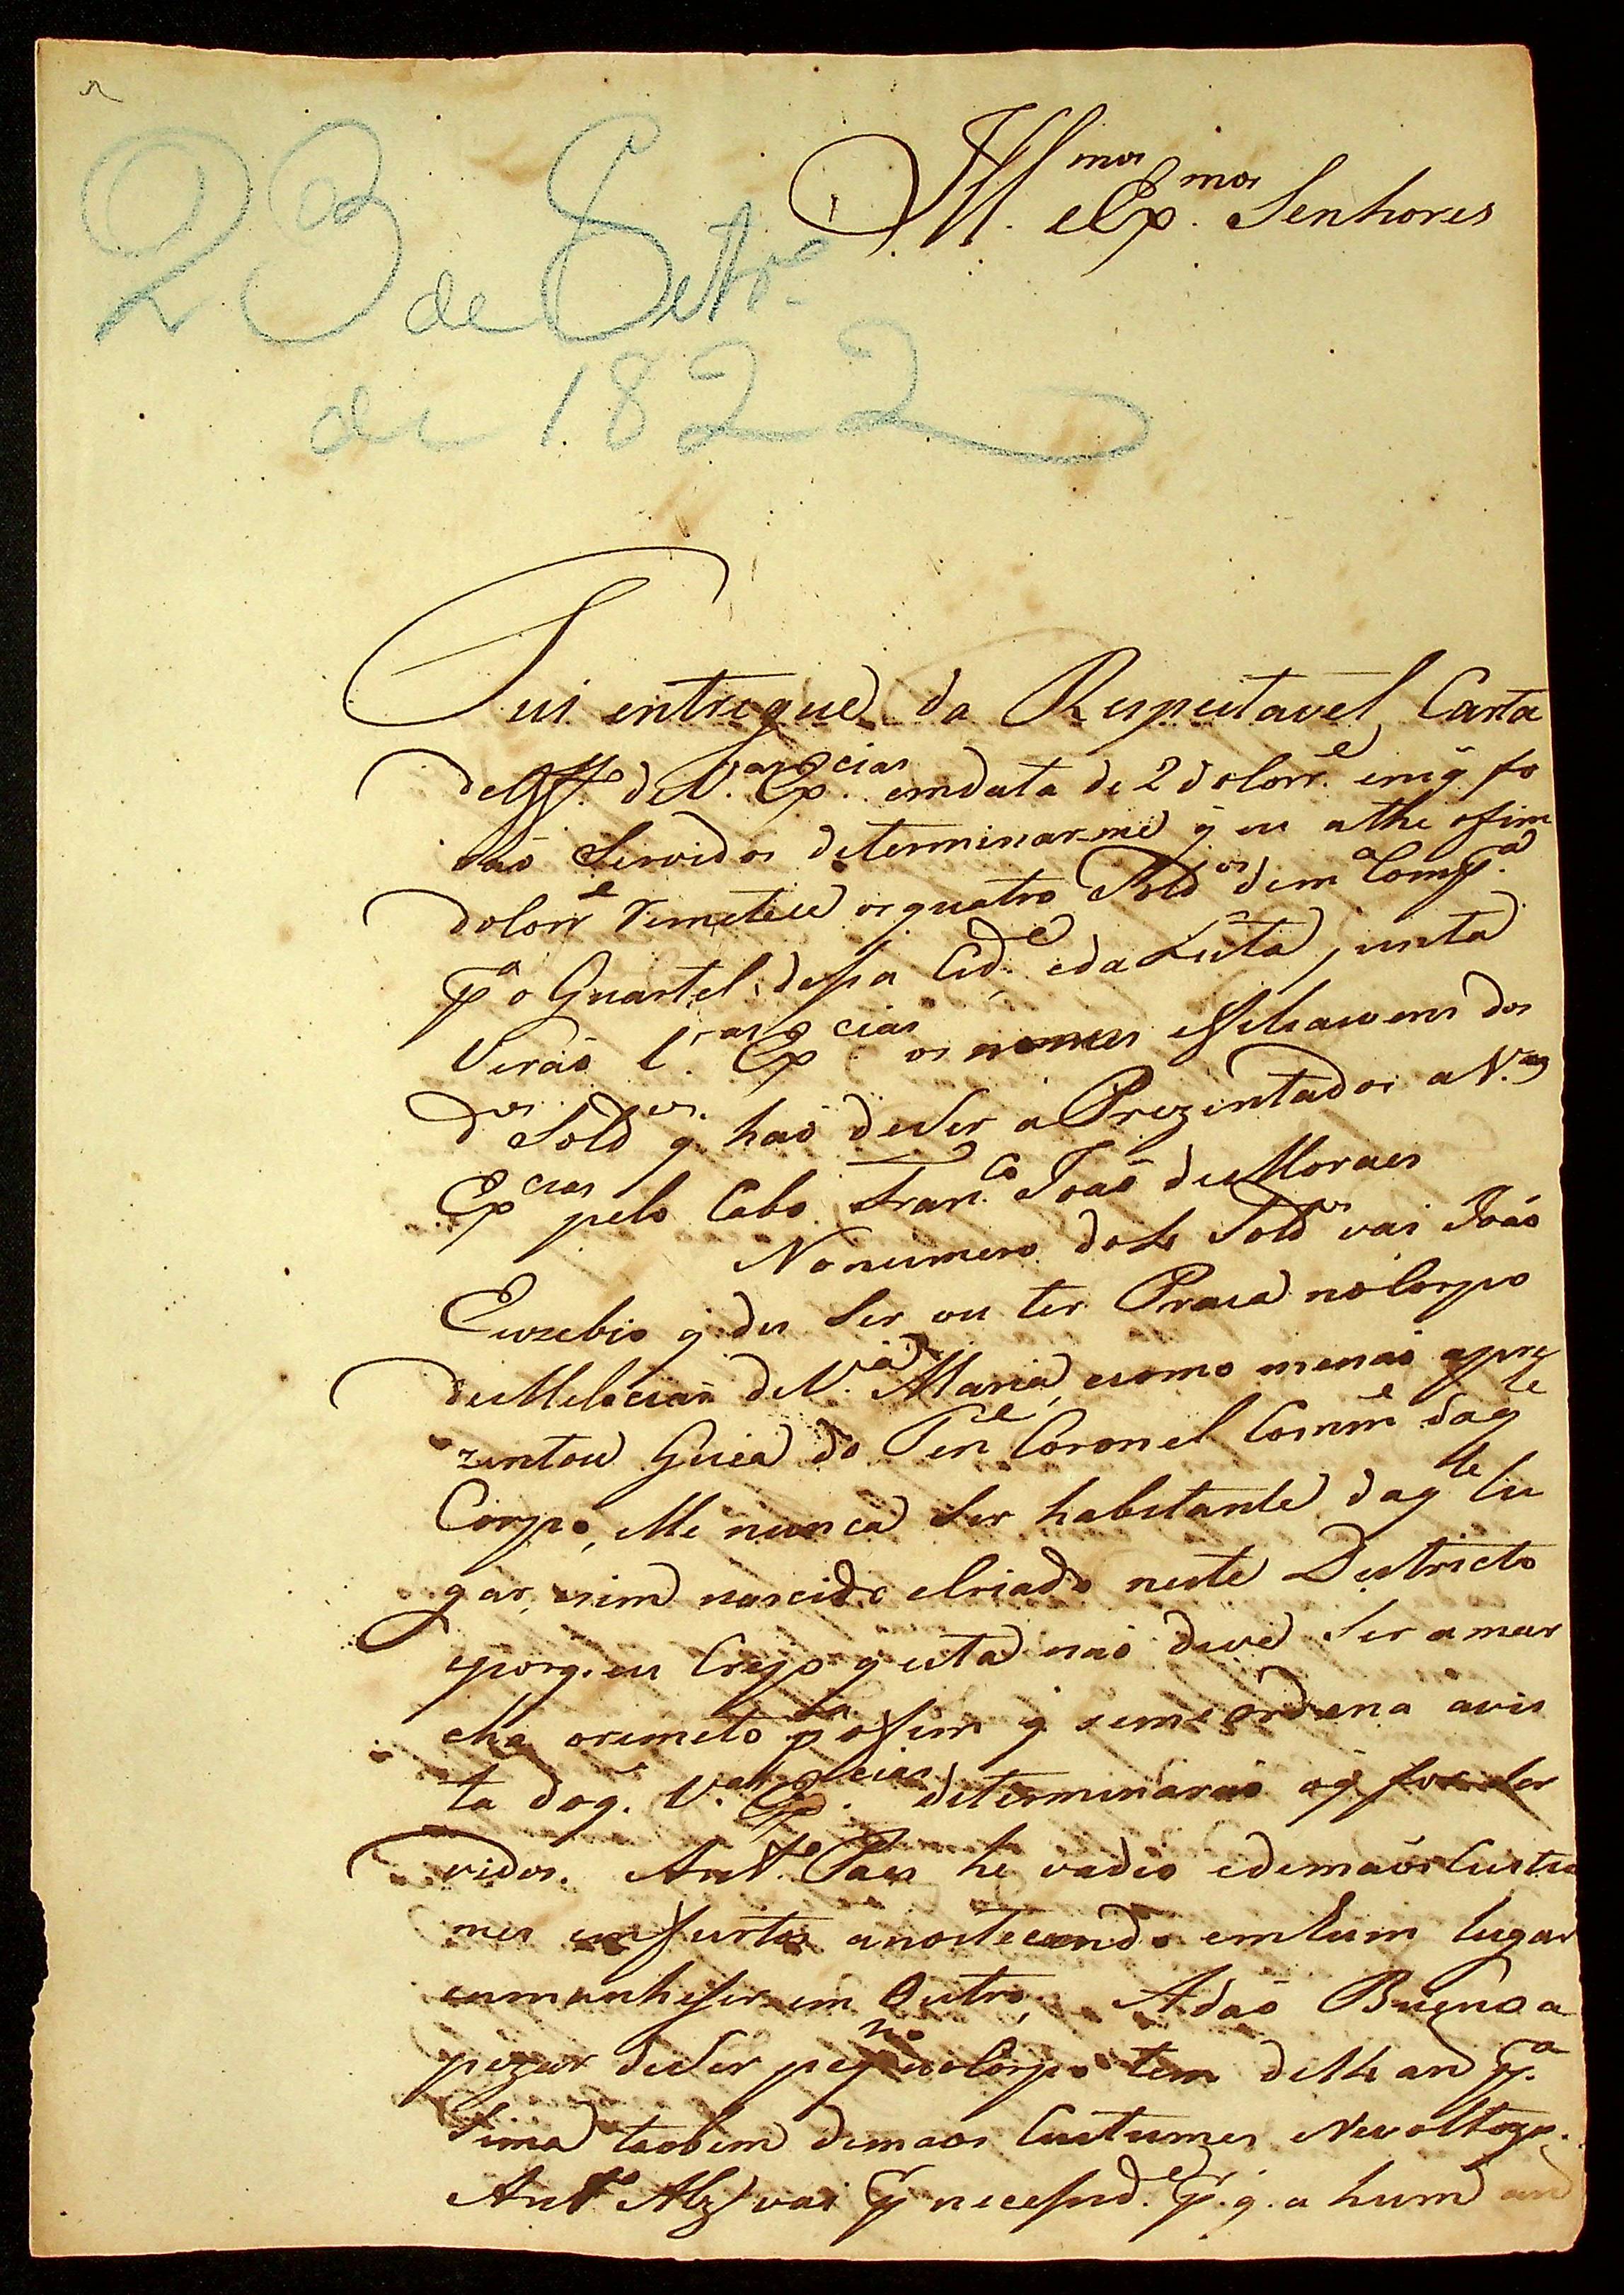 23 de Setbr.e
de 1822
Ill.mos e Ex.mos Senhores
Fui entregue da Respeitavel Carta
de Off.o de V.as Ex.cias em data de 2 do Corr.e em q̃ fo
raõ Servidos determinar-me q̃ eu athe o fim
do Corr.e remetece os quatro Sold.os dem.a Comp.a
p.a o Quartel dessa Cid.e e da Lista junta
Veraõ V.as Ex.cias os nomes e filiacoens dos
d.os Sold.os q̃ haõ de Ser aPrezentados a V.as
Ex.cias pelo Cabo Fran.co Joaõ de Moraes
No numero dos Sold.os vai Joaõ
Euzebio q̃ diz Ser ou ter Praca no Corpo
de Melecias de V.a Maria, e como me naõ apre
zentou Guia do Ten.e Coronel Comm.e daq.le
Corpo, elle nunca Ser habitante daq.le lu
gar, e sim nascido e Criado neste Destricto
e porq. eu Creyo q̃ esta naõ deve Ser a mar
cha o remeto p.a o fim q̃ se me ordena avis
ta doq. V.as Ex.cias determinaraõ o q̃ for Ser
vidos. Ant.o Paes he vadio e de maós Custu
mes em furtos anoitecendo em hum lugar
e amanhesser em Outro, Adaõ Bueno a
pezar de Ser peq.no no Corpo tem de 16 an. p.a
Sima taobem de maos Custumes Revoltozo.
Ant.o Alz' vai p.r necessid.e p.r q. a hum an